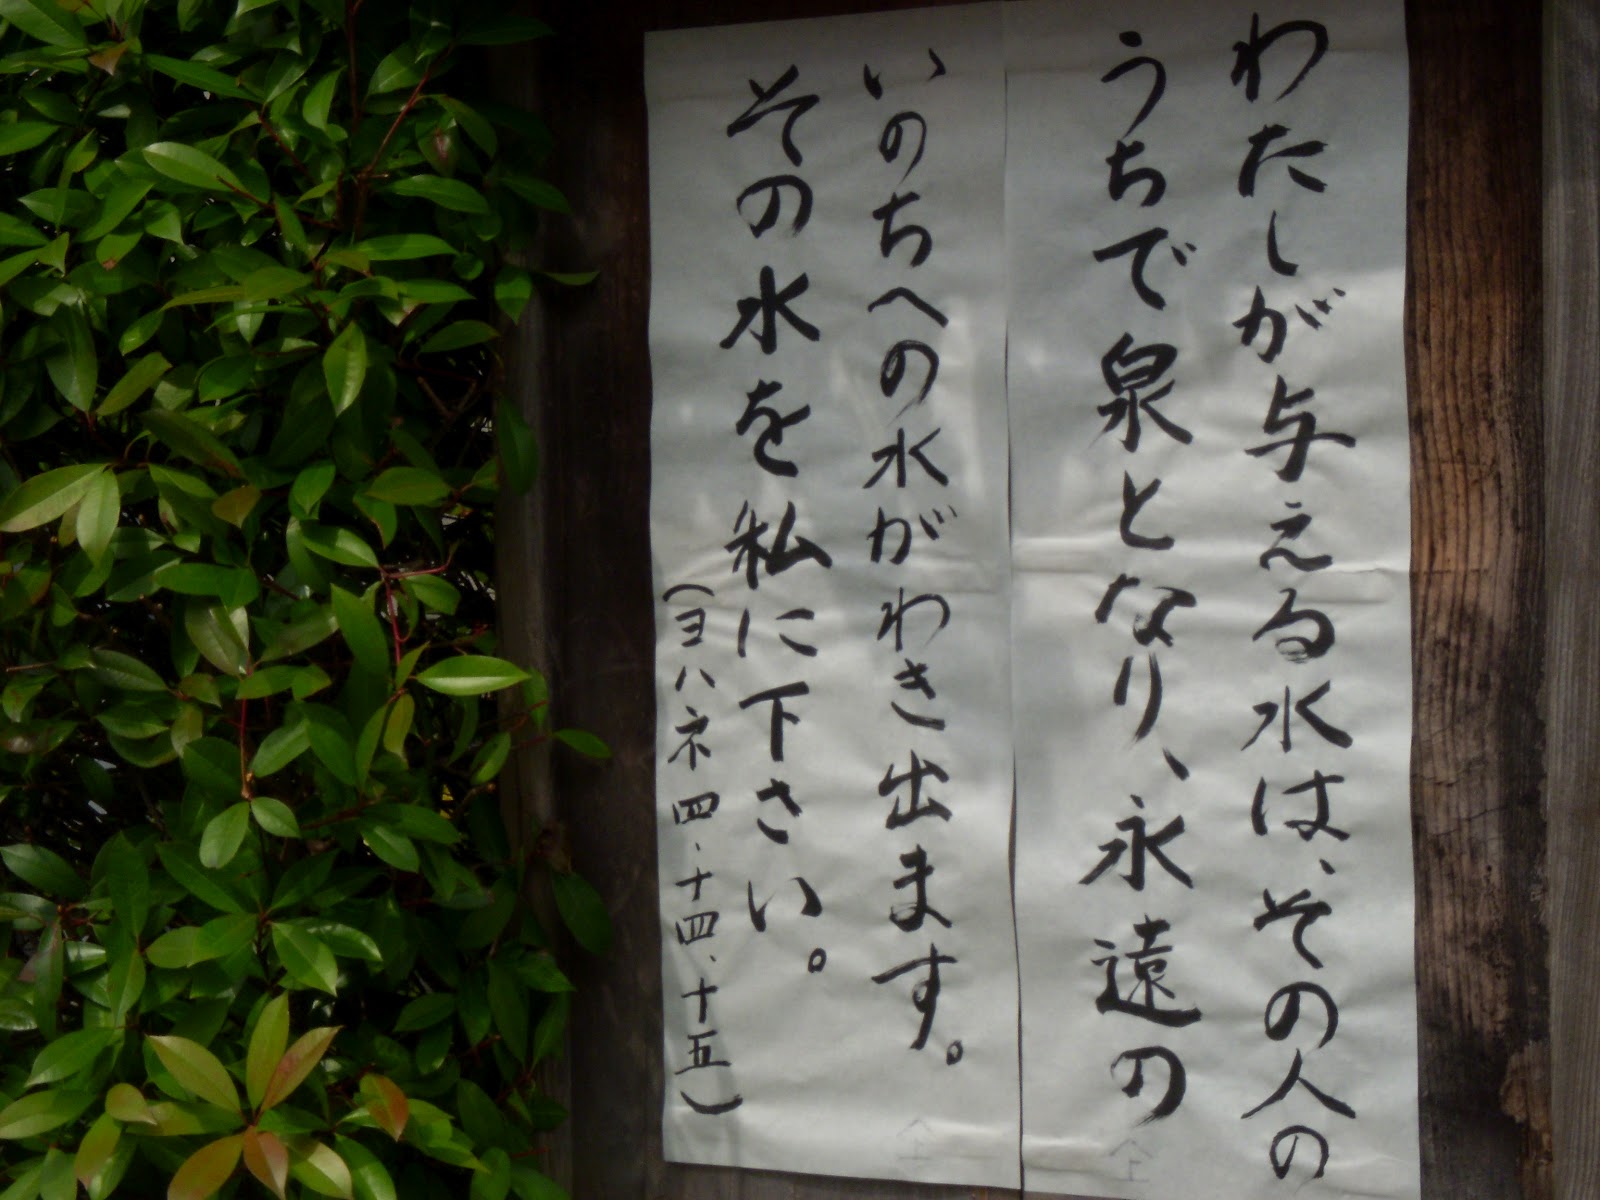 わたしが与える水は、その人の
うちで泉となり、永遠の
いのちへの水がわき出ます。
その水を私に下さい。
(ヨハネ四、十四、十五)